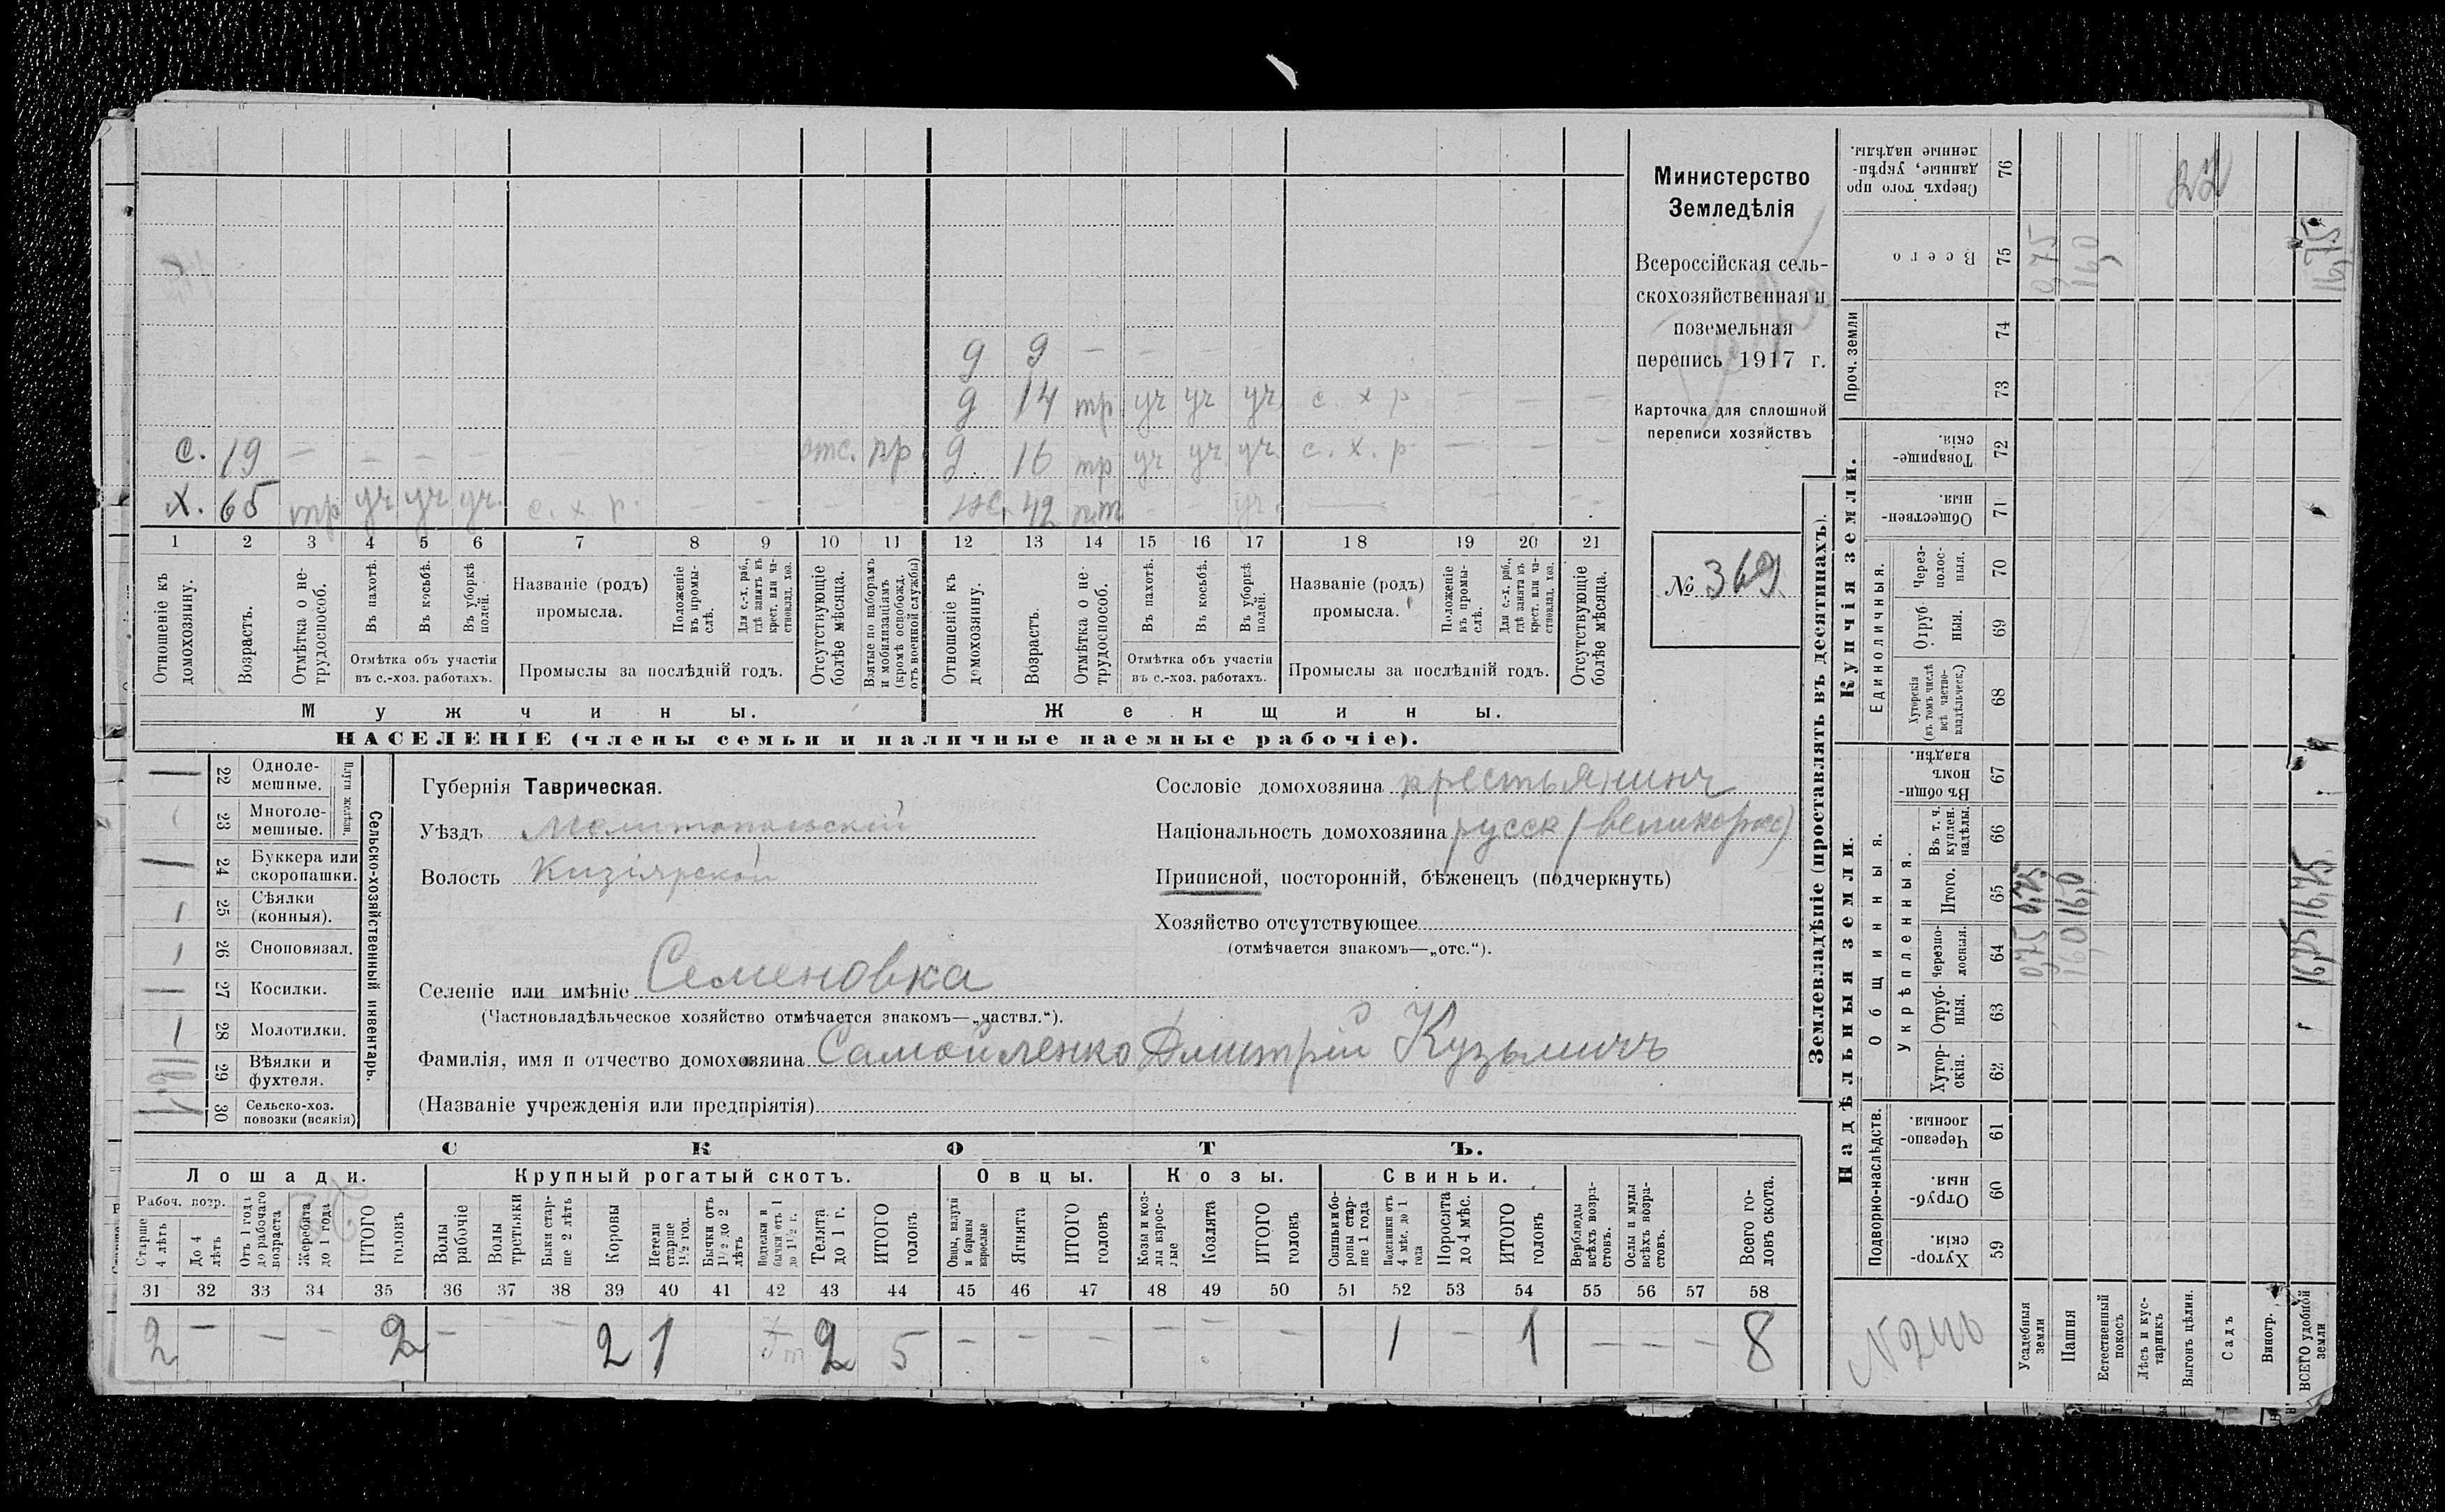 д 9 — — — —
д 14 тр уч уч уч с. х р — — —
с. 19 — — — — — — — отс. пр д. 16 тр уч уч уч с. х. р — — —
х. 65 тр уч уч уч. с. х. р. — — — — ж. 42 пт — — уч. — — — —
1 2 3 4 5 6 7 8 9 10 11 12 13 14 15 16 17 18 19 20 21
Отношеніе къ домохозяину.
Возрастъ.
Отмѣтка о не-
трудоспособ.
Въ пахотѣ.
Въ косьбѣ.
Въ уборкѣ
полей.
Отмѣтка объ участіи
въ с.-хоз. работахъ.
Названіе (родъ)
промысла.
Положеніе
въ промы-
слѣ.
Для с.-х. раб.,
гдѣ занятъ въ
крест. или ча-
стновлад. хоз.
Промыслы за послѣдній годъ.
Отсутствующіе
болѣе мѣсяца.
Взятые по наборамъ
и мобилизаціямъ
(кромѣ освобожд.
отъ военной службы)
Отношеніе къ
домохозяину.
Возрастъ.
Отмѣтка о не-
трудоспособ.
Въ пахотѣ.
Въ косьбѣ.
Въ уборкѣ
полей.
Отмѣтка объ участіи
въ с.-хоз. работахъ.
Названіе (родъ)
промысла.
Положеніе
въ промы-
слѣ.
Для с.-х. раб.,
гдѣ занята въ
крест. или ча-
стновлад. хоз.
Промыслы за послѣдній годъ.
Отсутствующіе
болѣе мѣсяца.
Мужчины.
Женщины.
НАСЕЛЕНІЕ (члены семьи и наличные наемные рабочіе).
Министерство
Земледѣлія
Всероссійская сель-
скохозяйственная и
поземельная
перепись 1917 г.
Карточка для сплошной
переписи хозяйствъ
№ 369
1 22 Одноле-
мешные.
23 Многоле-
мешные.
Плуги желѣзн.
1 24 Буккера или
скоропашки.
1 25 Сѣялки
(конныя).
1 26 Сноповязал.
27 Косилки.
1 28 Молотилки.
29 Вѣялки и
фухтеля.
30 Сельско-хоз.
повозки (всякія)
Сельско-хозяйственный инвентарь.
Губернія Таврическая.
Уѣздъ Мелитопольскій
Волость Кизіярской
Сословіе домохозяина крестьянинъ
Національность домохозяина русск (великорос)
Приписной, посторонній, бѣженецъ (подчеркнуть)
Хозяйство отсутствующее
(отмѣчается знакомъ—„отс.“).
Селеніе или имѣніе Семеновка
(Частновладѣльческое хозяйство отмѣчается знакомъ—„частвл.“).
Фамилія, имя и отчество домохозяина Самойленко Дмитрій Кузьмичъ
(Названіе учрежденія или предпріятія)
СКОТЪ.
Лошади. Крупный рогатый скотъ. Овцы. Козы. Свиньи.
Рабоч. возр.
Старше
4 лѣтъ
До 4
лѣтъ
Отъ 1 года
до рабочаго
возраста
Жеребята
до 1 года
ИТОГО
головъ
Волы
рабочіе
Волы
третьяки
Быки стар-
ше 2 лѣтъ
Коровы
Нетели
старше
1½ год.
Бычки отъ
1½ до 2
лѣтъ
Подтелки и
бычки отъ 1
до 1½ г.
Телята
до 1 г.
ИТОГО
головъ
Овцы, валухи
и бараны
взрослые
Ягнята
ИТОГО
головъ
Козы и коз-
лы взрос-
лые
Козлята
ИТОГО
головъ
Свиньи и бо-
ровы стар-
ше 1 года
Подсвинки отъ
4 мѣс. до 1
года
Поросята
до 4 мѣс.
ИТОГО
головъ
Верблюды
всѣхъ возра-
стовъ.
Ослы и мулы
всѣхъ возра-
стовъ.
Всего го-
ловъ скота.
31 32 33 34 35 36 37 38 39 40 41 42 43 44 45 46 47 48 49 50 51 52 53 54 55 56 57 58
2 — — — 2 — — — 2 1 2 5 — — — — — — 1 — 1 — — — 8
Землевладѣніе (проставлять въ десятинахъ).
Надѣльныя земли.
Купчія земли.
Проч. земли
Подворно-наслѣдств.
Общинныя.
Укрѣпленныя.
Единоличныя.
Сверхъ того про
данные, укрѣп-
ленные надѣлы. 76
Всего 75
74
73
Товарище-
скія. 72
Обществен-
ныя. 71
Через-
полос-
ныя. 70
Отруб
ныя. 69
Хуторскія
(въ томъ числѣ
всѣ частно-
владѣльческ.) 68
Въ общи-
номъ
владѣн. 67
Въ т. ч.
куплен.
надѣлы. 66
Итого. 65
Черезпо-
лосныя. 64
Отруб-
ныя. 63
Хутор-
скія. 62
Черезпо-
лосныя. 61
Отруб-
ныя. 60
Хутор-
скія. 59
Усадебныя
земли
0,75 0,75 0,75
Пашня
16,0 16,0 16,0
Естественный
покосъ
Лѣсъ и кус-
тарникъ
Выгонъ цѣлин.
Садъ
Виногр.
ВСЕГО удобной
земли
16,75 16,75 16,75
22